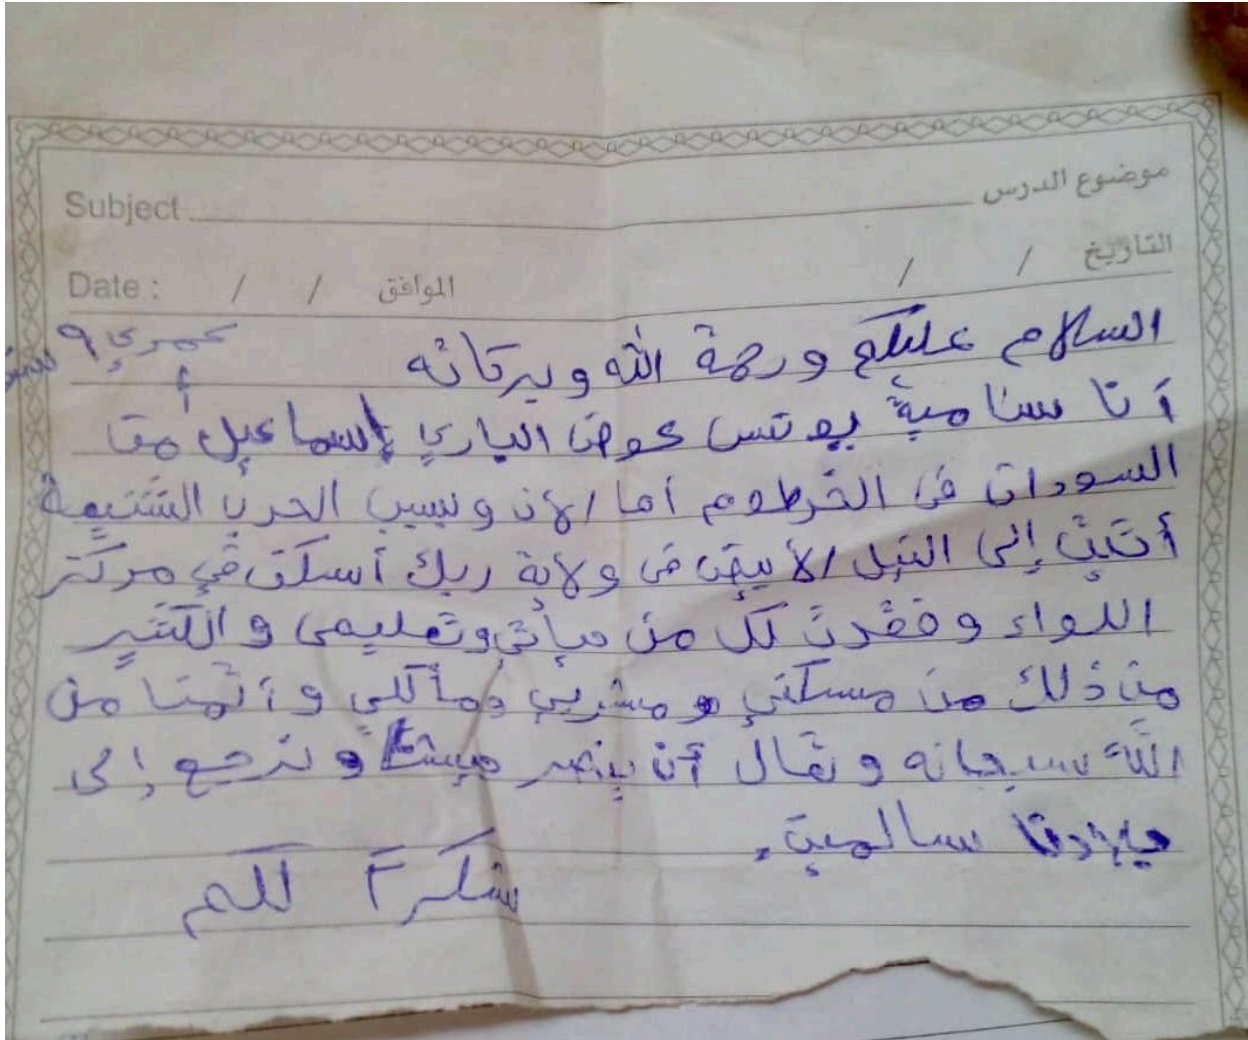 موضوع الدرس Subject
التاريخ / / الموافق / / Date :
السلام عليكم ورحمة الله وبركاته عمري ٩
أنا سامية يونس عوض الباري إسماعيل من
السودان في الخرطوم أما الأن وبسبب الحرب الشنيعة
أتيت إلى النيل الأبيض في ولاية ربك أسكن في مركز
اللواء وفقدت كل من حياتي وتعليمي والكثير
من ذلك من مسكني ومشربي ومأكلي وأتمنا من
الله سبحانه وتعال أن ينصر جيشنا ونرجع إلى
ديارنا سالمين.
شكراً لكم